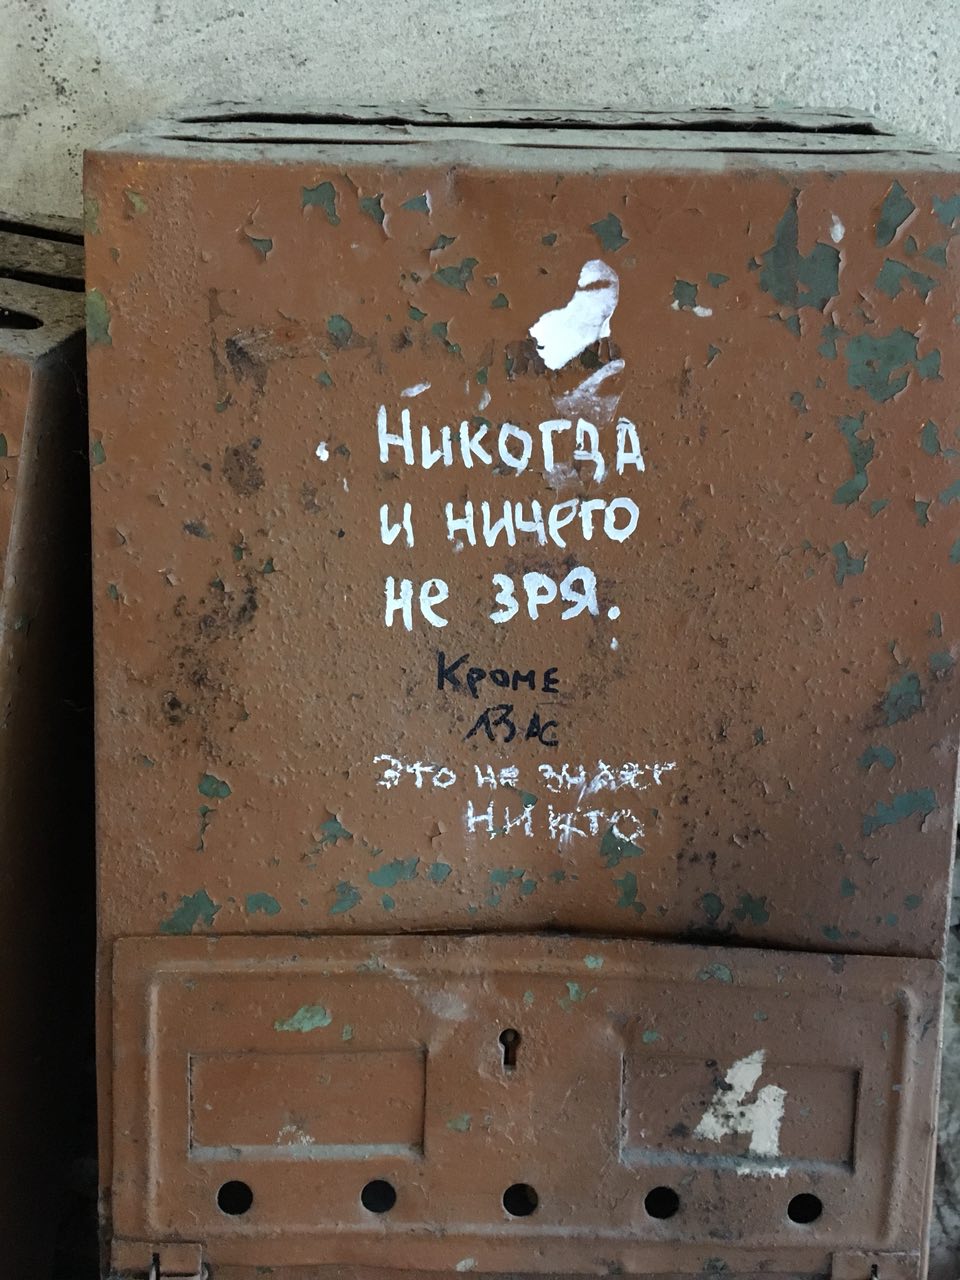 Никогда
и ничего
не зря.
Кроме
ВАС
Это не знает
НИКТО
4